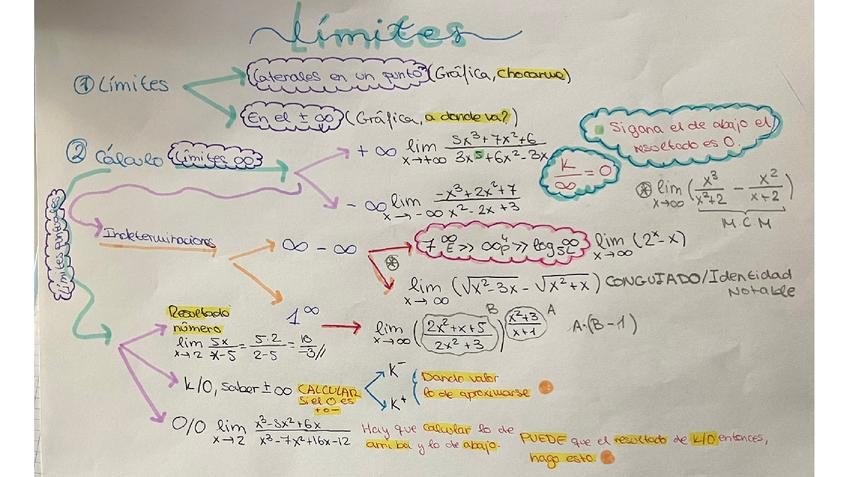 Límites
① Límites
Laterales en un punto (Gráfica, chocarme)
En el ±∞ (Gráfica, a donde va?)
② Cálculo Límites ∞
+∞ lim x→+∞ (3x³+7x²+6)/(3x⁵+6x²-3x)
K/∞ = 0
Si gana el de abajo el
resultado es 0.
-∞ lim x→-∞ (-x³+2x²+7)/(x²-2x+3)
⊛ lim x→∞ (x³/(x²+2) - x²/(x+2))
M.C.M
Límites puntuales
Indeterminaciones
∞ - ∞
⊛
lim x→∞ (2ˣ-x)
lim x→∞ (√x²-3x - √x²+x) CONGUJADO/Identidad
Notable
1^∞
lim x→∞ ((2x²+x+5)/(2x²+3))^((x²+3)/(x+1)) B A A·(B-1)
Resultado
número
lim x→2 5x/(x-5) = 5·2/(2-5) = 10/-3//
K/0, saber ±∞ CALCULAR
si el 0 es
+o-
K⁻
K⁺
Dando valor
lo de aproximarse
0/0 lim x→2 (x³-5x²+6x)/(x³-7x²+16x-12)
Hay que calcular lo de
arriba y lo de abajo. PUEDE que el resultado de K/0 entonces,
hago esto.